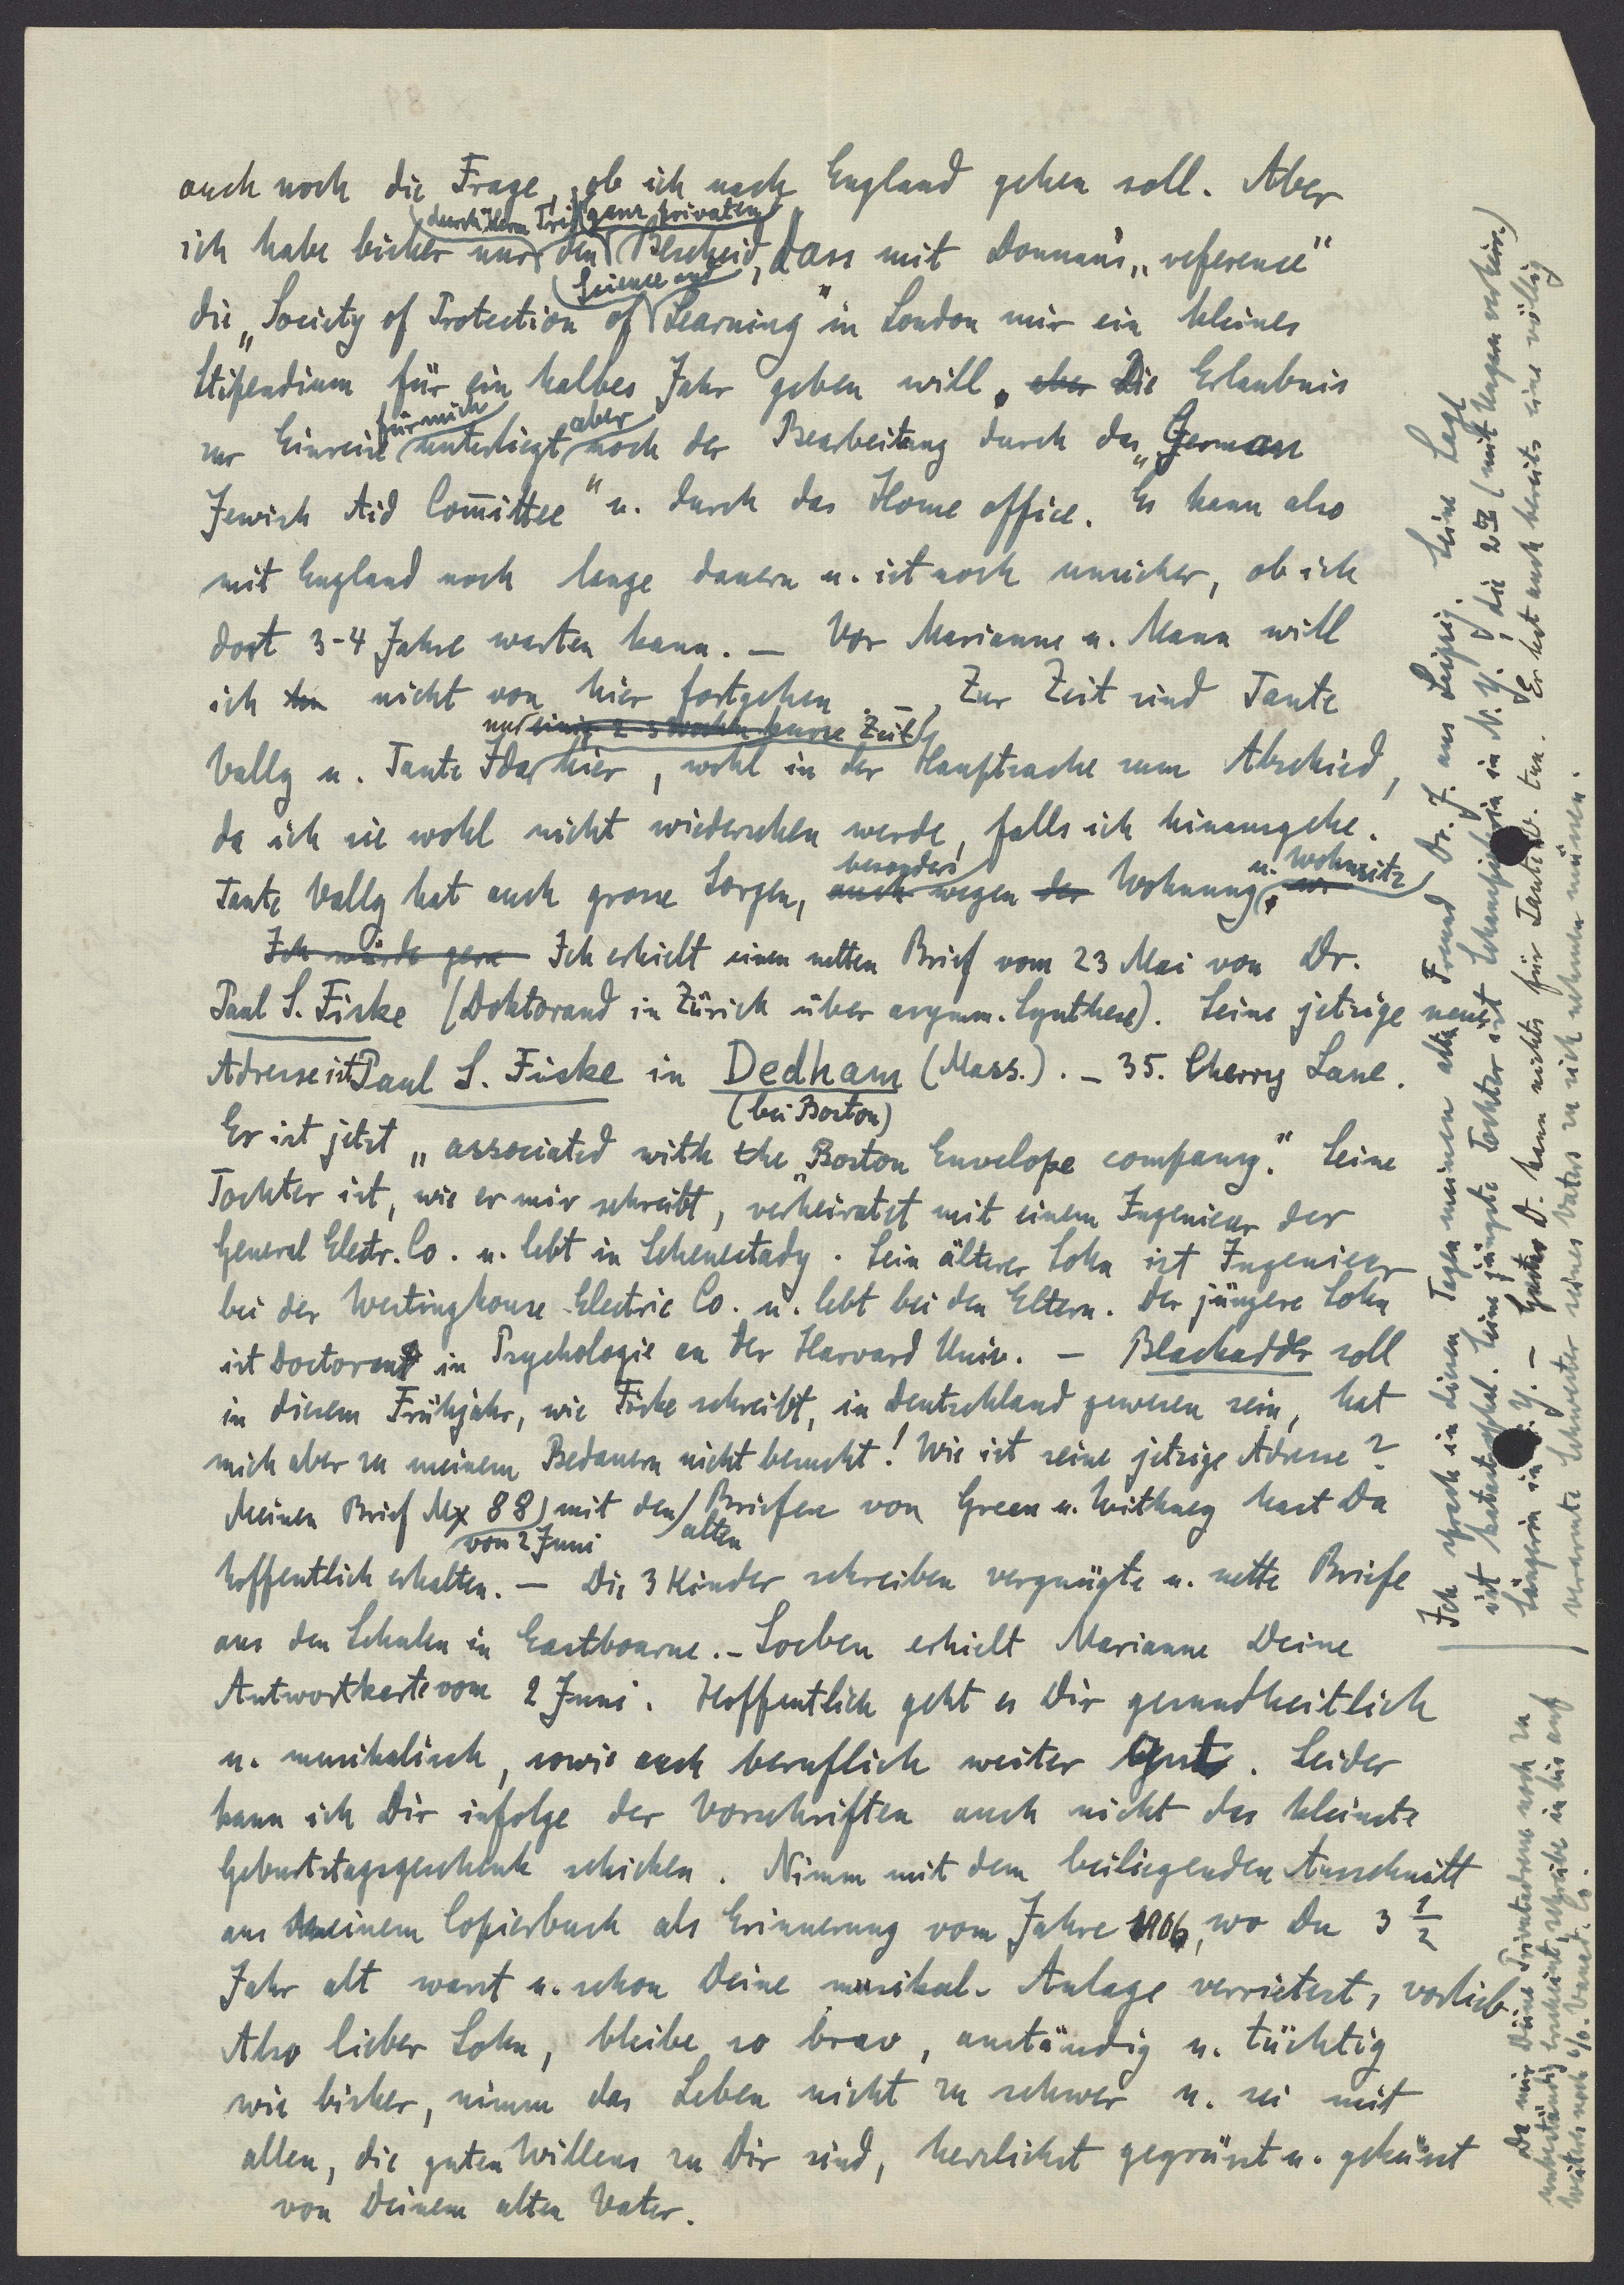 auch noch die Frage, ob ich nach England gehen soll. Aber
durch Herrn ganz privaten
ich habe bisher nur den Bescheid, dass mit Donnan's "reference"
Science and
die "Society of Protection of Learning" in London mir ein kleines
Stipendium für ein halbes Jahr geben will. aber Die Erlaubnis
für mich aber
zur Einreise unterliegt noch der Bearbeitung durch das "German
Jewish Aid Com̄ittee" u. durch das Home office. Es kann also
mit England noch lange dauern u. ist noch unsicher, ob ich
dort 3-4 Jahre warten kann. – Vor Marianne u. Mann will
ich nicht von hier fortgehen. – Zur Zeit sind Tante
nur einige 2-3 Wochen kurze Zeit
Vally u. Tante Ida hier, wohl in der Hauptsache zum Abschied,
da ich sie wohl nicht wiedersehen werde, falls ich hinausgehe.
besonders u. Wohnsitz
Tante Vally hat auch grosse Sorgen, auch wegen der Wohnung
Ich würde gern Ich erhielt einen netten Brief vom 23 Mai von Dr.
Paul S. Fiske (Doktorand in Zürich über asymm. Synthese). Seine jetzige neue
Adresse ist Paul S. Fiske in Dedham (Mass.). – 35. Cherry Lane.
(bei Boston)
Er ist jetzt "associated with the "Boston Envelope company." Seine
Tochter ist, wie er mir schreibt, verheiratet mit einem Ingenieur der
General Electr. Co. u. lebt in Schenectady. Sein älterer Sohn ist Ingenieur
bei der Westinghouse Electric Co. u. lebt bei den Eltern. Der jüngere Sohn
ist Doctorand in Psychologie an der Harvard Univ. – Blackadder soll
in diesem Frühjahr, wie Fiske schreibt, in Deutschland gewesen sein, hat
mich aber zu meinem Bedauern nicht besucht! Wie ist seine jetzige Adresse?
Meinen Brief Mx 88 mit den Briefen von Green u. Withney hast Du
von 2 Juni alten
hoffentlich erhalten. – Die 3 Kinder schreiben vergnügte u. nette Briefe
aus den Schulen in Eastbourne. – Soeben erhielt Marianne Deine
Antwortkarte vom 2 Juni. Hoffentlich geht es Dir gesundheitlich
u. musikalisch, sowie auch beruflich weiter gut. Leider
kann ich Dir infolge der Vorschriften auch nicht das kleinste
Geburtstagsgeschenk schicken. Nimm mit dem beiliegenden Ausschnitt
aus meinem Copierbuch als Erinnerung vom Jahre 1906, wo Du 3 1/2
Jahr alt warst u. schon Deine musikal. Anlage verrietest, vorlieb.
Also lieber Sohn, bleibe so brav, anständig u. tüchtig
wie bisher, nimm das Leben nicht zu schwer u. sei mit
allen, die guten Willens zu Dir sind, herzlichst gegrüsst u. geküsst
von Deinem alten Vater.
Ich sprach in diesen Tagen meinen alten Freund Dr. J. aus Leipzig. Seine Lage
ist katastrophal. Seine jüngste Tochter ist Schauspielerin in N. Y., die 2te (mit Ungarn verheir.)
Sängerin in N. Y. – Gustav D. kann nichts für Tante V. tun. Er hat auch bereits eine völlig
verarmte Schwester seines Vaters zu sich nehmen müssen.
Da mir Deine Privatadresse noch zu
unbeständig erscheint, schreibe ich bis auf
weiteres noch c/o. Co.